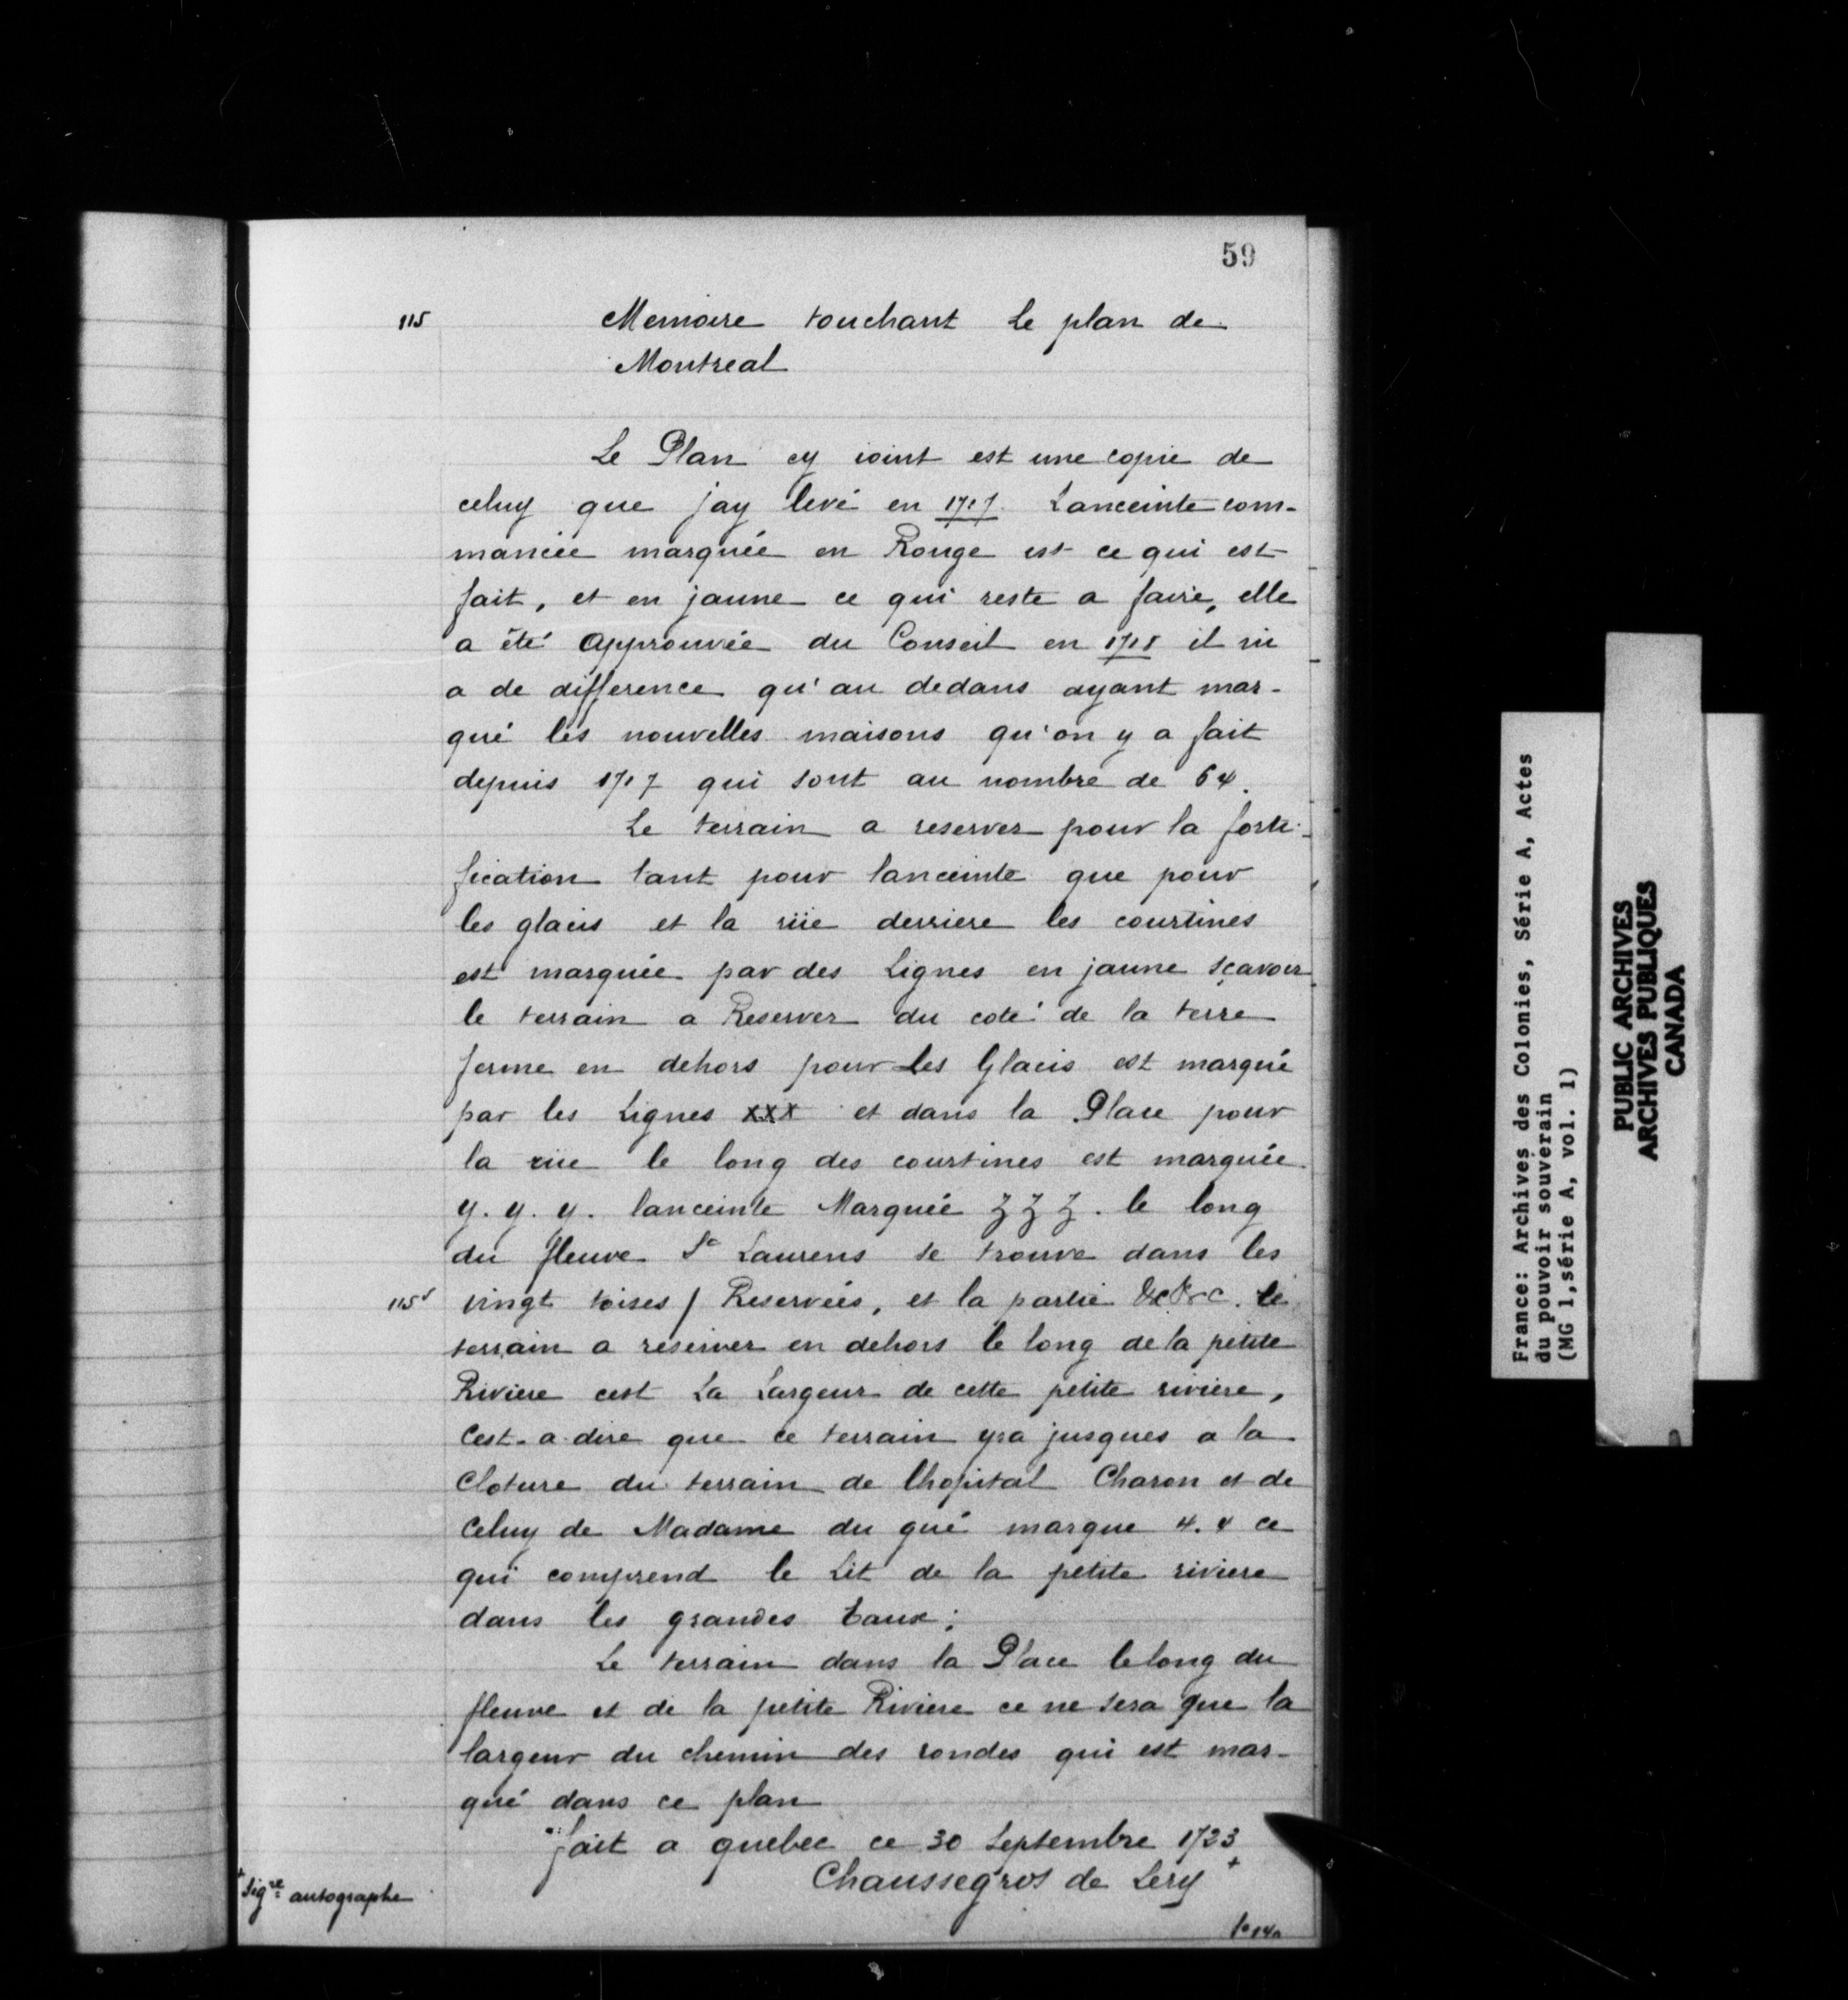 59
115
Memoire touchant Le plan de
Montreal
Le Plan cy ioint est une copie de
celuy que jay levé en 1717. Lanceinte com-
mancée marquée en Rouge est ce qui est
fait, et en jaune ce qui reste a faire, elle
a été approuvée du Conseil en 1718 il ni
a de difference qu'au dedans ayant mar-
qué les nouvelles maisons qu'on y a fait
depuis 1717 qui sont au nombre de 64.
Le terrain a reserver pour la forti-
fication tant pour lanceinte que pour
les glacis et la rüe derriere les courtines
est marquée par des Lignes en jaune sçavoir
le terrain a Reserver du coté de la terre
ferme en dehors pour Les Glacis est marqué
par les Lignes xxx et dans la Place pour
la rue le long des courtines est marquée
y. y. y. lanceinte Marquée Z Z Z. le long
du fleuve St Laurens se trouve dans les
115v
vingt toises / Reservées, et la partie &c&c. le
terrain a reserver en dehors le long de la petite
Riviere cest La Largeur de cette petite riviere,
Cest-a-dire que ce terrain yra jusques a la
Cloture du terrain de lhopital Charon et de
Celuy de Madame du gué marque 4. 4 ce
qui comprend le Lit de la petite riviere
dans les grandes Eaux;
Le terrain dans la Place le long du
fleuve et de la petite Riviere ce ne sera que la
largeur du chemin des rondes qui est mar-
qué dans ce plan
fait a quebec ce 30 Septembre 1723
Chaussegros de Lery +
+ Sigre autographe
France: Archives des Colonies, Série A, Actes
du pouvoir souverain
(MG 1,série A, vol. 1)
PUBLIC ARCHIVES
ARCHIVES PUBLIQUES
CANADA